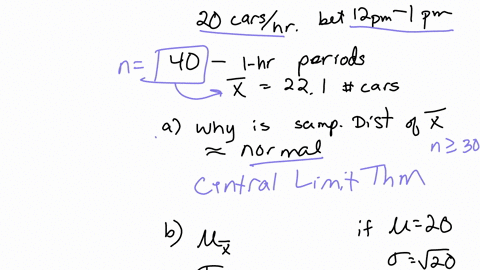 20 cars/hr. bet 12pm-1pm
n= 40 - 1-hr periods
x̅ = 22.1 # cars
a) why is samp. Dist of x̅
≈ normal n≥30
Central Limit Thm
b) μx̅ if μ=20
σ=√20